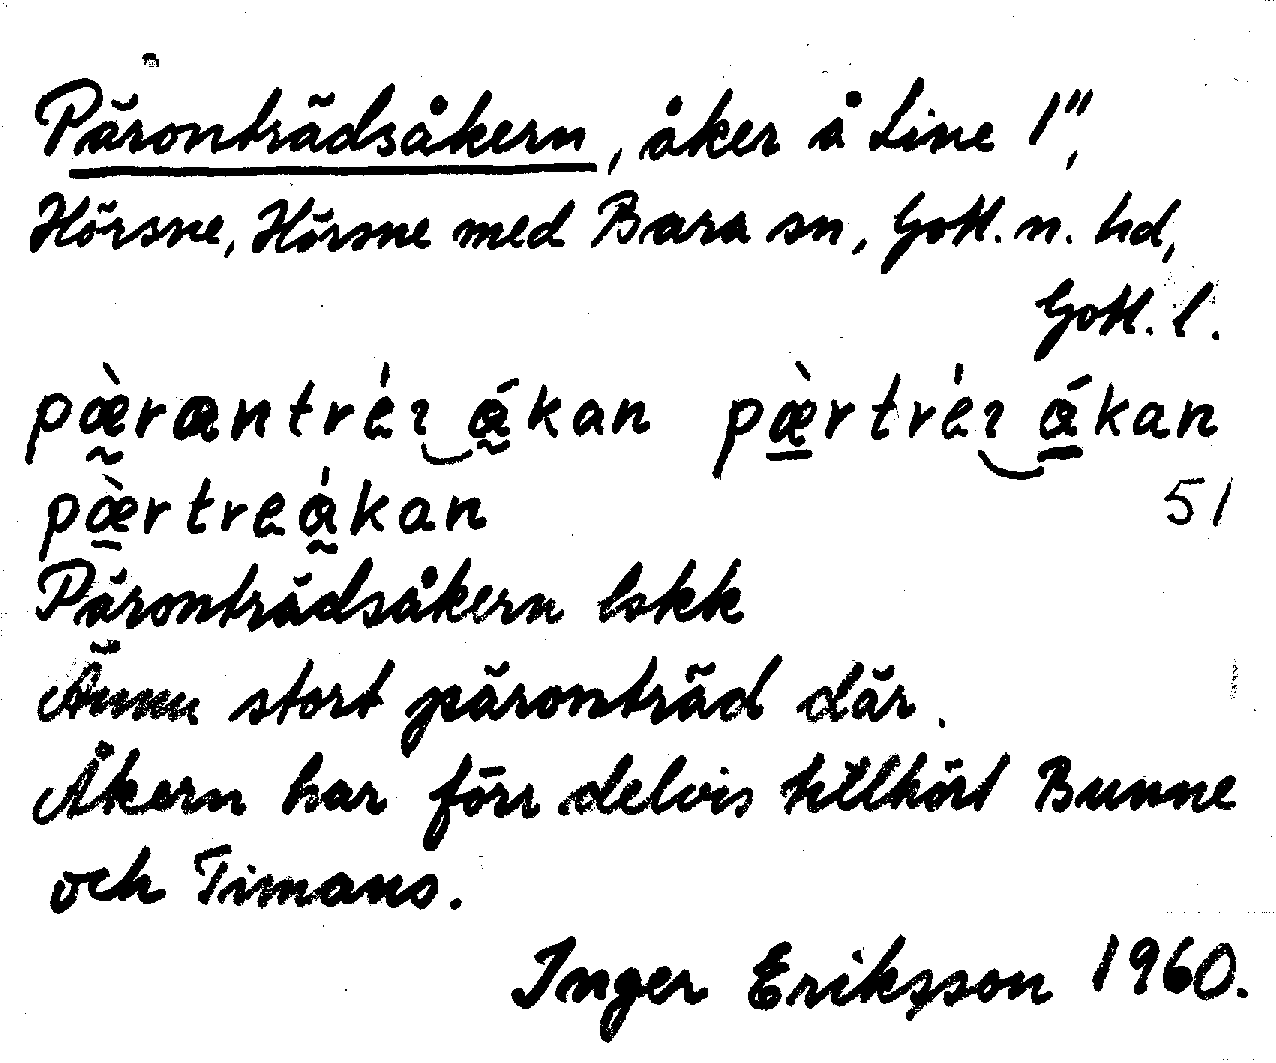 Päronträdsåkern, åker å Line 1",
Hörsne, Hörsne med Bara sn, Gotl. n. hd,
Gotl. l.
pæ̀ræntréɿ ákan pæ̀rtréɿ ákan
pæ̀rtreákan 51
Päronträdsåkern lskk
Ännu stort päronträd där.
Åkern har förr delvis tillhört Bunne
och Timans.
Inger Eriksson 1960.